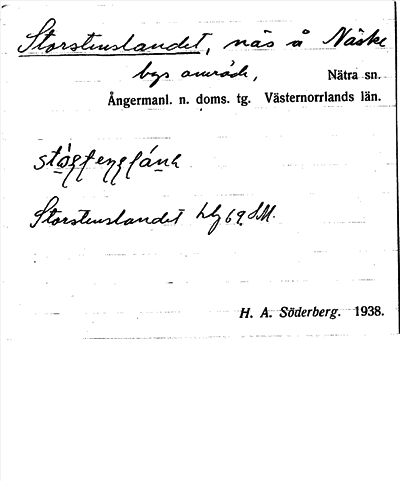 Storstenslandet, näs å Näske
bys område, Nätra sn.
Ångermanl. n. doms. tg. Västernorrlands län.
Storstenslandet hly 69 SM.
H. A. Söderberg. 1938.